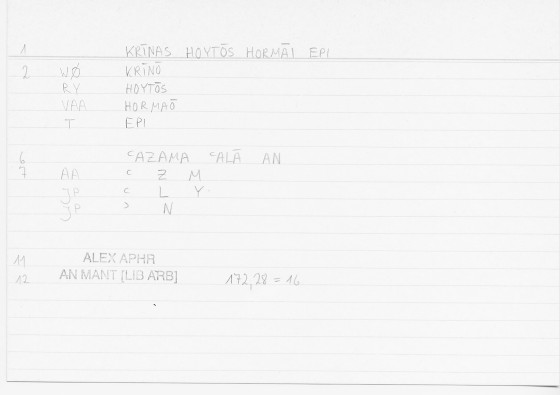 1 KRĪNAS HOYTŌS HORMĀI EPI
2 WØ KRĪNŌ
RY HOYTŌS
VAA HORMAŌ
T EPI
6 ᶜAZAMA ᶜALĀ AN
7 AA ᶜ Z M
JP ᶜ L Y
JP ᵓ N
11 ALEX APHR
12 AN MANT [LIB ARB] 172,28 = 16